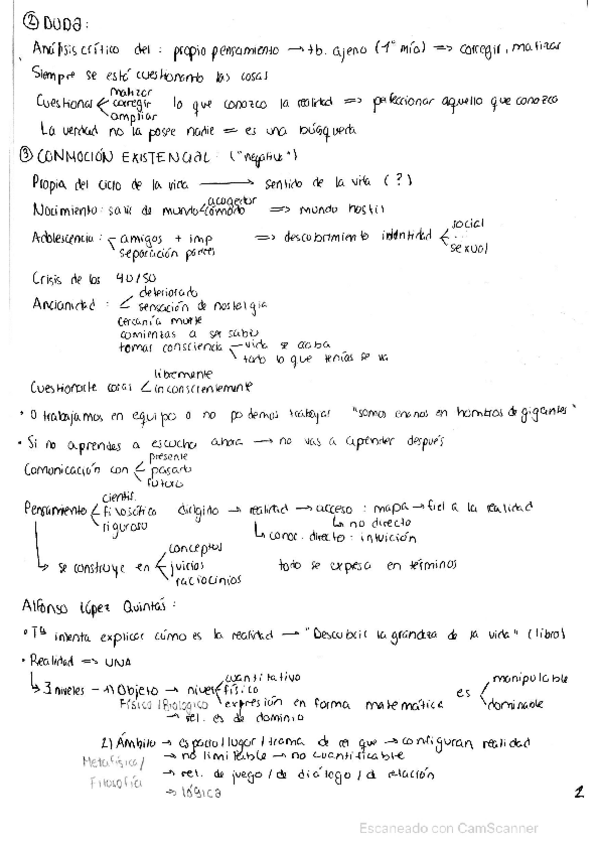 ② DUDA:
Análisis crítico del: propio pensamiento → tb. ajeno (1º mío) => corregir, matizar
Siempre se está cuestionando las cosas
matizar
Cuestionar corregir lo que conozco la realidad => perfeccionar aquello que conozco
ampliar
La verdad no la posee nadie = es una búsqueda
③ CONMOCIÓN EXISTENCIAL: ("negativa")
Propia del ciclo de la vida → sentido de la vida (?)
acogedor
Nacimiento: salir de mundo cómodo => mundo hostil
social
Adolescencia: - amigos + imp => descubrimiento identidad ...
separación padres sexual
Crisis de los 40/50
deteriorado
Ancianidad: sensación de nostalgia
cercanía muerte
comienzas a ser sabio
tomas consciencia - vida se acaba
todo lo que tenías se va
libremente
Cuestionarte cosas inconscientemente
· O trabajamos en equipo o no podemos trabajar "somos enanos en hombros de gigantes"
· Si no aprendes a escuchar ahora → no vas a aprender después
presente
Comunicación con pasado
futuro
científ.
Pensamiento filosófico dirigido → realidad → acceso: mapa → fiel a la realidad
riguroso no directo
conoc. directo: intuición
conceptos
se construye en juicios todo se expresa en términos
raciocinios
Alfonso López Quintás:
· intenta explicar cómo es la realidad → "Descubrir la grandeza de la vida" (libro)
· Realidad => UNA
cuantitativo manipulable
3 niveles - 1) Objeto → nivel físico es
Físico / Biológico expresión en forma matemática dominable
→ rel. es de dominio
2) Ámbito → espacio / lugar / trama de rel que → configuran realidad
Metafísica / → no limitable → no cuantificable
Filosofía → rel. de juego / de diálogo / d relación
→ lógica
1
Escaneado con CamScanner